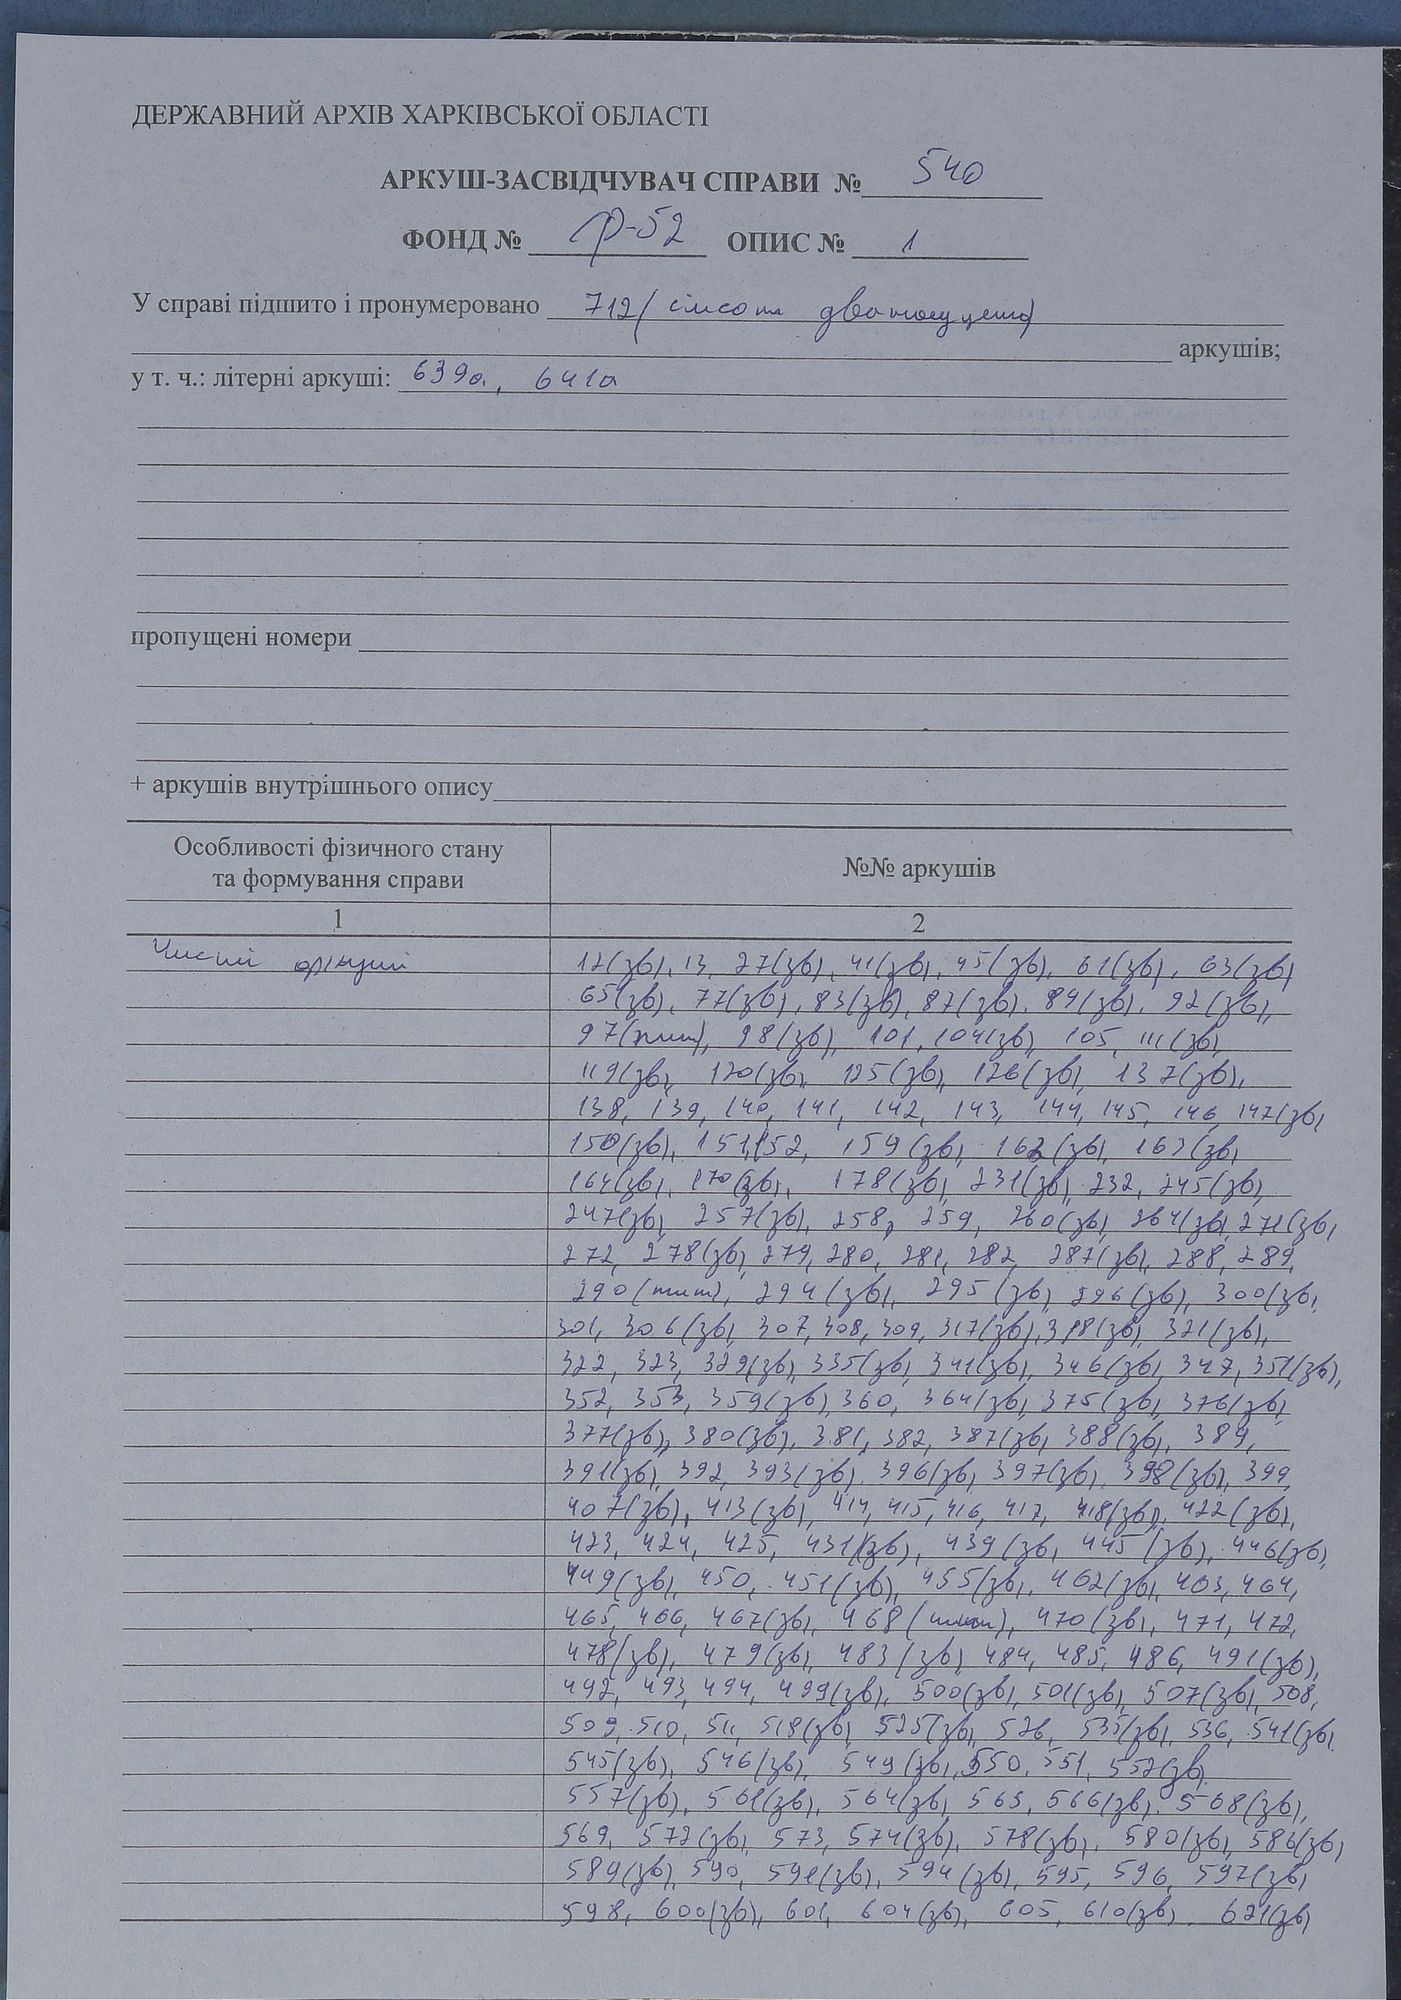 ДЕРЖАВНИЙ АРХІВ ХАРКІВСЬКОЇ ОБЛАСТІ
АРКУШ-ЗАСВІДЧУВАЧ СПРАВИ № 540
ФОНД № Р-52 ОПИС № 1
У справі підшито і пронумеровано 712 (сімсот дванадцять)
аркушів;
у т. ч.: літерні аркуші: 639а, 641а
пропущені номери
+ аркушів внутрішнього опису
Особливості фізичного стану та формування справи
№№ аркушів
1 2
Чисті аркуші 12(зв), 13, 27(зв), 41(зв), 45(зв), 61(зв), 63(зв)
65(зв), 77(зв), 83(зв), 87(зв), 89(зв), 92(зв),
97(тит), 98(зв), 101, 104(зв), 105, 111(зв),
119(зв), 120(зв), 125(зв), 126(зв), 137(зв),
138, 139, 140, 141, 142, 143, 144, 145, 146, 147(зв),
150(зв), 151, 152, 159(зв), 162(зв), 163(зв),
164(зв), 170(зв), 178(зв), 231(зв), 232, 245(зв),
247(зв), 257(зв), 258, 259, 260(зв), 264(зв), 271(зв),
272, 278(зв), 279, 280, 281, 282, 287(зв), 288, 289,
290(тит), 294(зв), 295(зв), 296(зв), 300(зв),
301, 306(зв), 307, 308, 309, 317(зв), 318(зв), 321(зв),
322, 323, 329(зв), 335(зв), 341(зв), 346(зв), 347, 351(зв),
352, 353, 359(зв), 360, 364(зв), 375(зв), 376(зв),
377(зв), 380(зв), 381, 382, 387(зв), 388(зв), 389,
391(зв), 392, 393(зв), 396(зв), 397(зв), 398(зв), 399,
407(зв), 413(зв), 414, 415, 416, 417, 418(зв), 422(зв),
423, 424, 425, 431(зв), 439(зв), 445(зв), 446(зв),
449(зв), 450, 451(зв), 455(зв), 462(зв), 463, 464,
465, 466, 467(зв), 468(тит), 470(зв), 471, 472,
478(зв), 479(зв), 483(зв), 484, 485, 486, 491(зв),
492, 493, 494, 499(зв), 500(зв), 501(зв), 507(зв), 508,
509, 510, 511, 518(зв), 525(зв), 526, 535(зв), 536, 541(зв),
545(зв), 546(зв), 549(зв), 550, 551, 552(зв),
557(зв), 561(зв), 564(зв), 565, 566(зв), 568(зв),
569, 572(зв), 573, 574(зв), 578(зв), 580(зв), 586(зв),
589(зв), 590, 591(зв), 594(зв), 595, 596, 597(зв),
598, 600(зв), 601, 604(зв), 605, 610(зв), 621(зв)